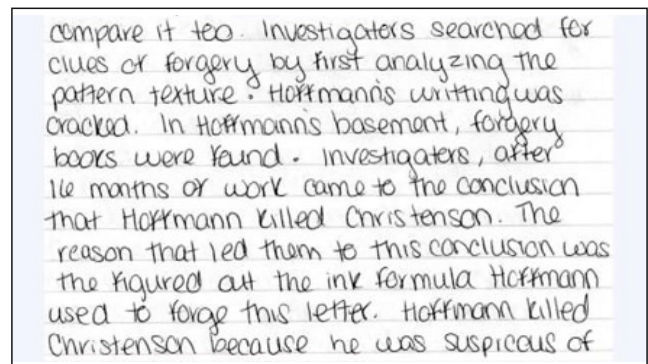 compare it too. Investigators searched for
clues of forgery by first analyzing the
pattern texture. Hoffmann's writting was
cracked. In Hoffmann's basement, forgery
books were found. Investigaters, after
16 months of work came to the conclusion
that Hoffmann killed Christenson. The
reason that led them to this conclusion was
the figured out the ink formula Hoffmann
used to forge this letter. Hoffmann killed
Christenson because he was suspicous of